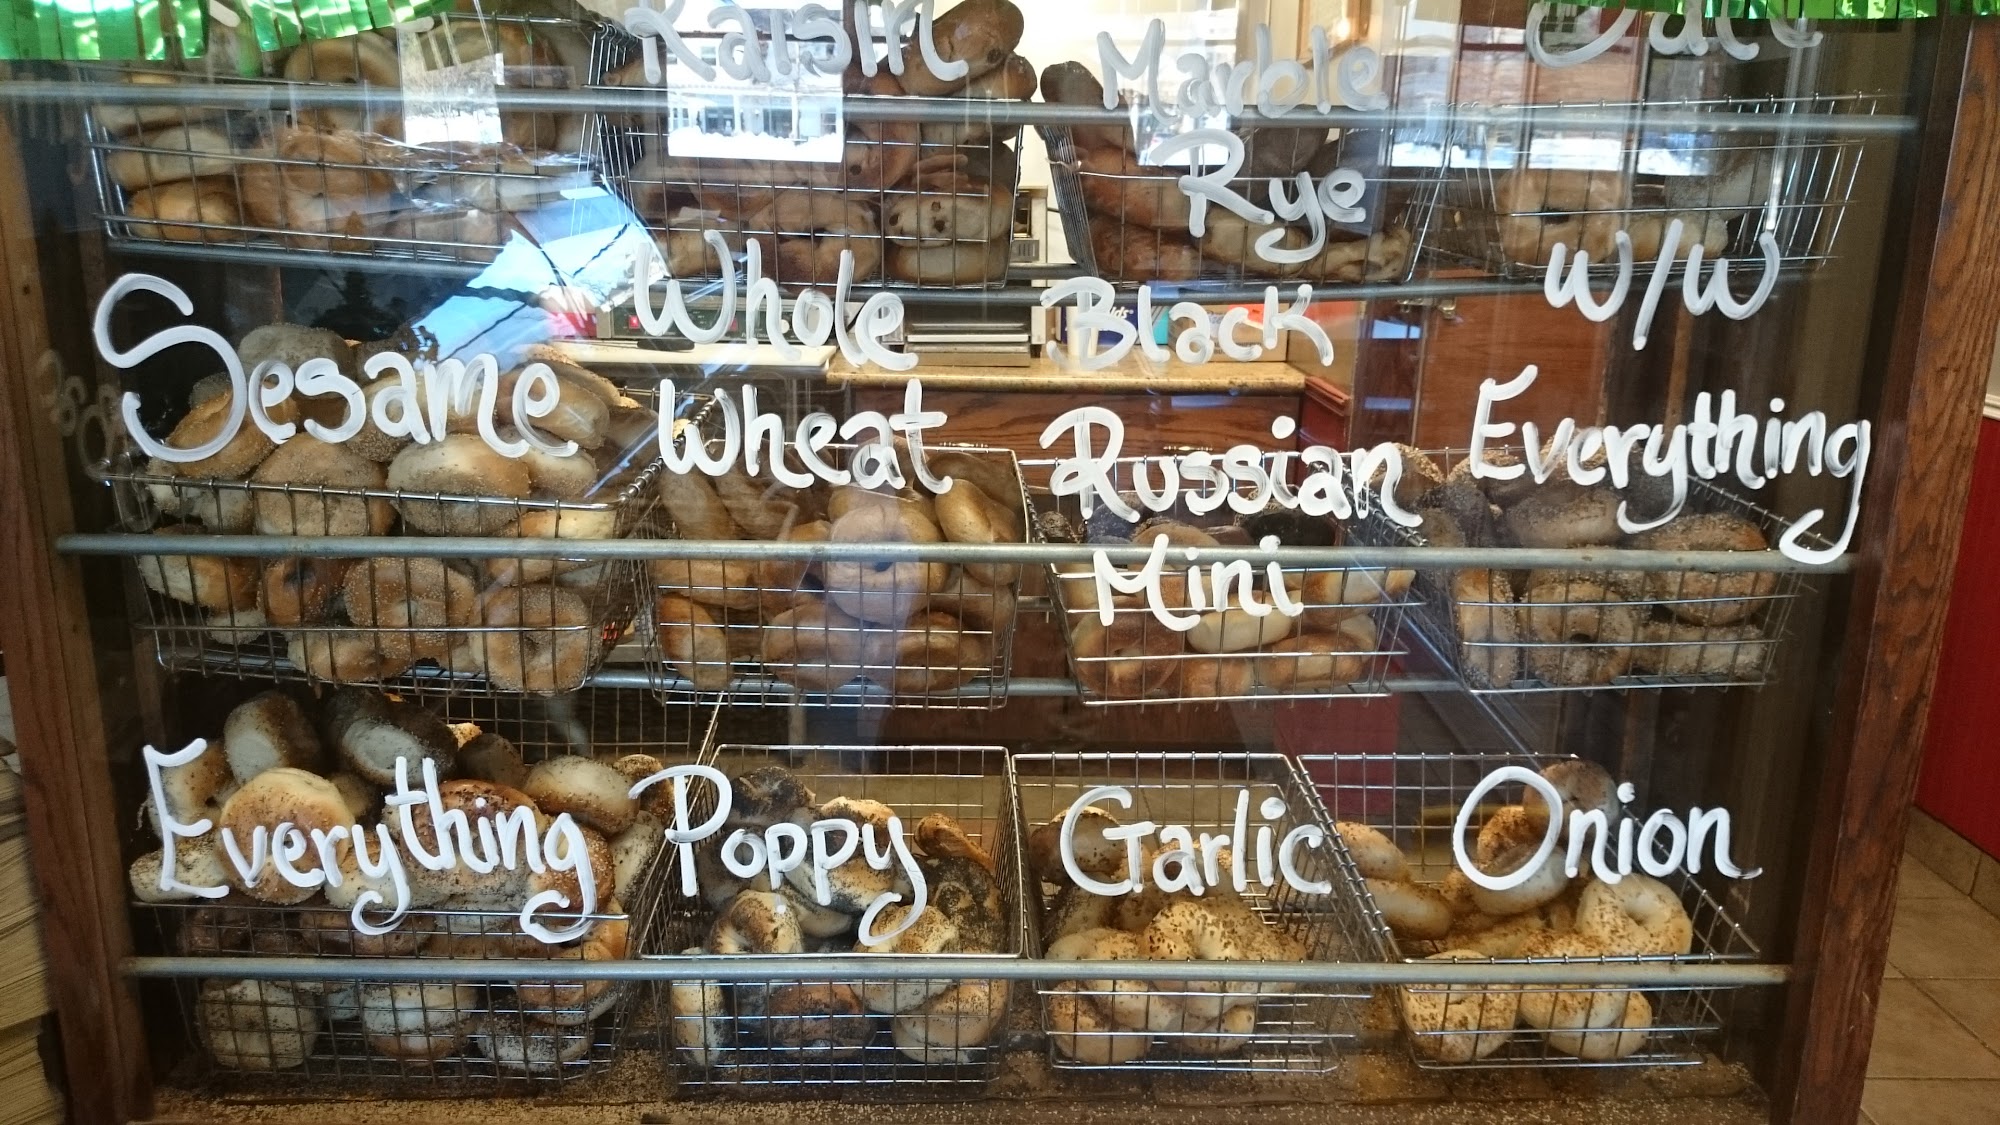 Raisin
Marble
Rye
Salt
Sesame
Whole
Wheat
Black
Russian
Mini
W/W
Everything
Everything
Poppy
Garlic
Onion